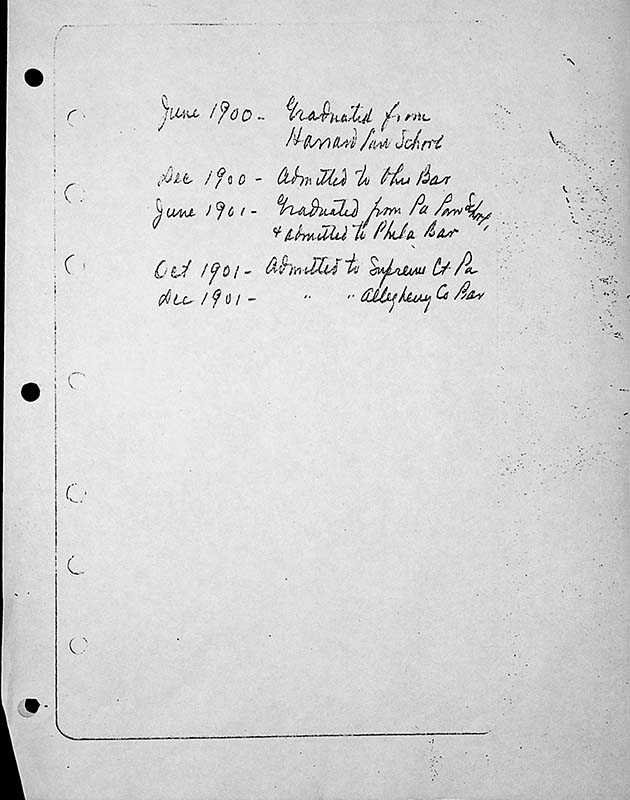 June 1900 - Graduated from
Harvard Law School
Dec 1900 - Admitted to Ohio Bar
June 1901 - Graduated from Pa Law School,
& admitted to Phila Bar
Oct 1901 - Admitted to Supreme Ct Pa
Dec 1901 - " " Allegheny Co Bar